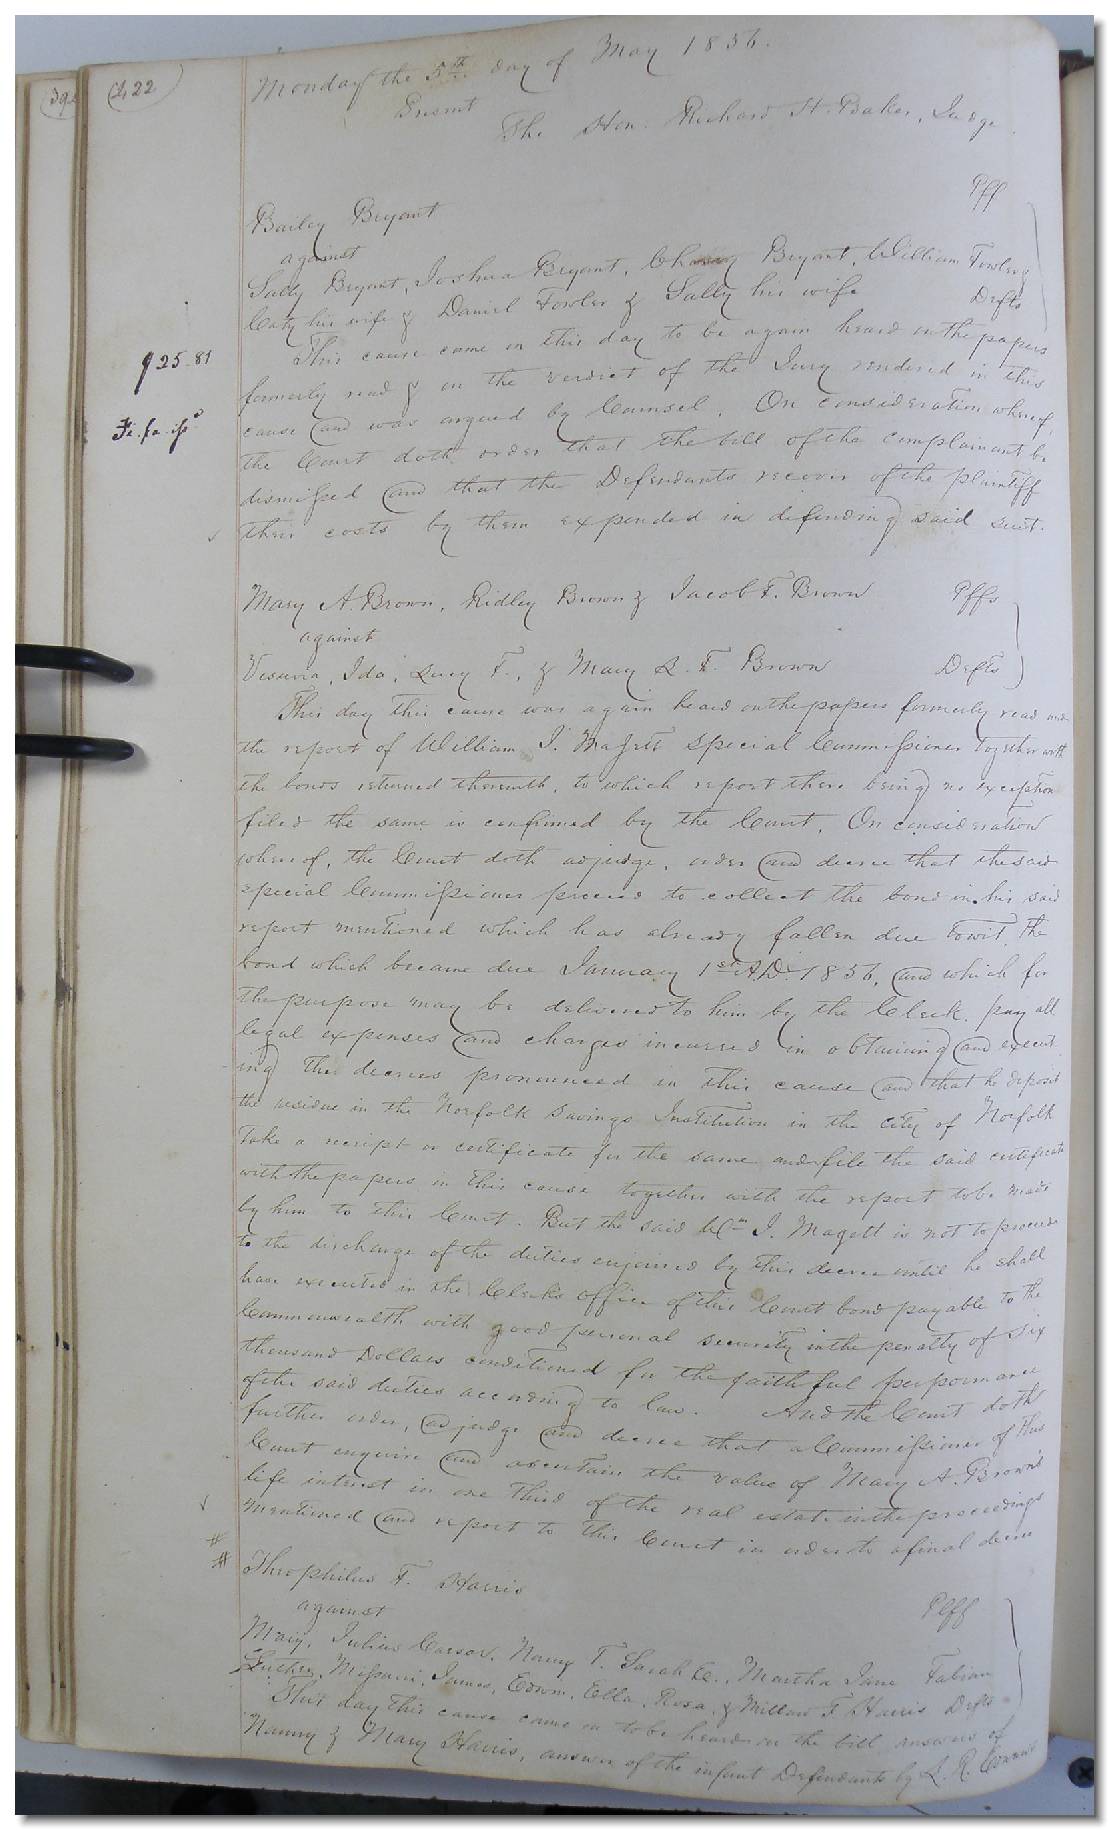 422
Monday the 5th day of May 1856.
Present
The Hon: Richard H. Baker, Judge
Plff
Bailey Bryant
against
Sally Bryant, Joshua Bryant, Bryant, William Fowler &
Caty his wife & Daniel Fowler & Sally his wife Defts
This cause came on this day to be again heard on the papers
$25.81
formerly read & on the verdict of the Jury rendered in this
cause and was argued by Counsel. On consideration whereof,
Fi. fa. isd
the Court doth order that the bill of the complainant be
dismissed and that the Defendants recover of the plaintiff
their costs by them expended in defending said suit.
Mary A. Brown, Ridley Brown & Jacob F. Brown Plffs
against
Vesuvia, Ida, Lucy F., & Mary L. F. Brown Defts
This day this cause was again heard on the papers formerly read and
the report of William J. Magett special Commissioner together with
the bonds returned therewith, to which report there being no exception
filed the same is confirmed by the Court. On consideration
whereof, the Court doth adjudge, order and decree that the said
special Commissioner proceed to collect the bond in his said
report mentioned which has already fallen due towit, the
bond which became due January 1st A.D. 1856, and which for
the purpose may be delivered to him by the Clerk, pay all
legal expenses and charges incurred in obtaining and execut
ing the decrees pronounced in this cause and that he deposit
the residue in the Norfolk Savings Institution in the city of Norfolk
Take a receipt or certificate for the same and file the said certificate
with the papers in this cause together with the report to be made
by him to this Court. But the said Wm J. Magett is not to proceed
to the discharge of the duties enjoined by this decree until he shall
have executed in the Clerks office of this Court bond payable to the
Commonwealth with good personal security in the penalty of Six
thousand Dollars conditioned for the faithful performance
of the said duties according to law. And the Court doth
further order, adjudge and decree that a Commissioner of this
Court enquire and ascertain the value of Mary A. Brown's
life interest in one third of the real estate in the proceedings
mentioned and report to this Court in order to a final decree
#
#
Theophilus F. Harris
against Plff
Mary, Julius Carson, Nanny T. Sarah E., Martha Jane Fabian
Luther, Missouri, James, Edwin, Ella, Rosa, & F. Harris Defts
This day this cause came on to be heard on the bill answers of
Nanny & Mary Harris, answer of the infant Defendants by L. R.